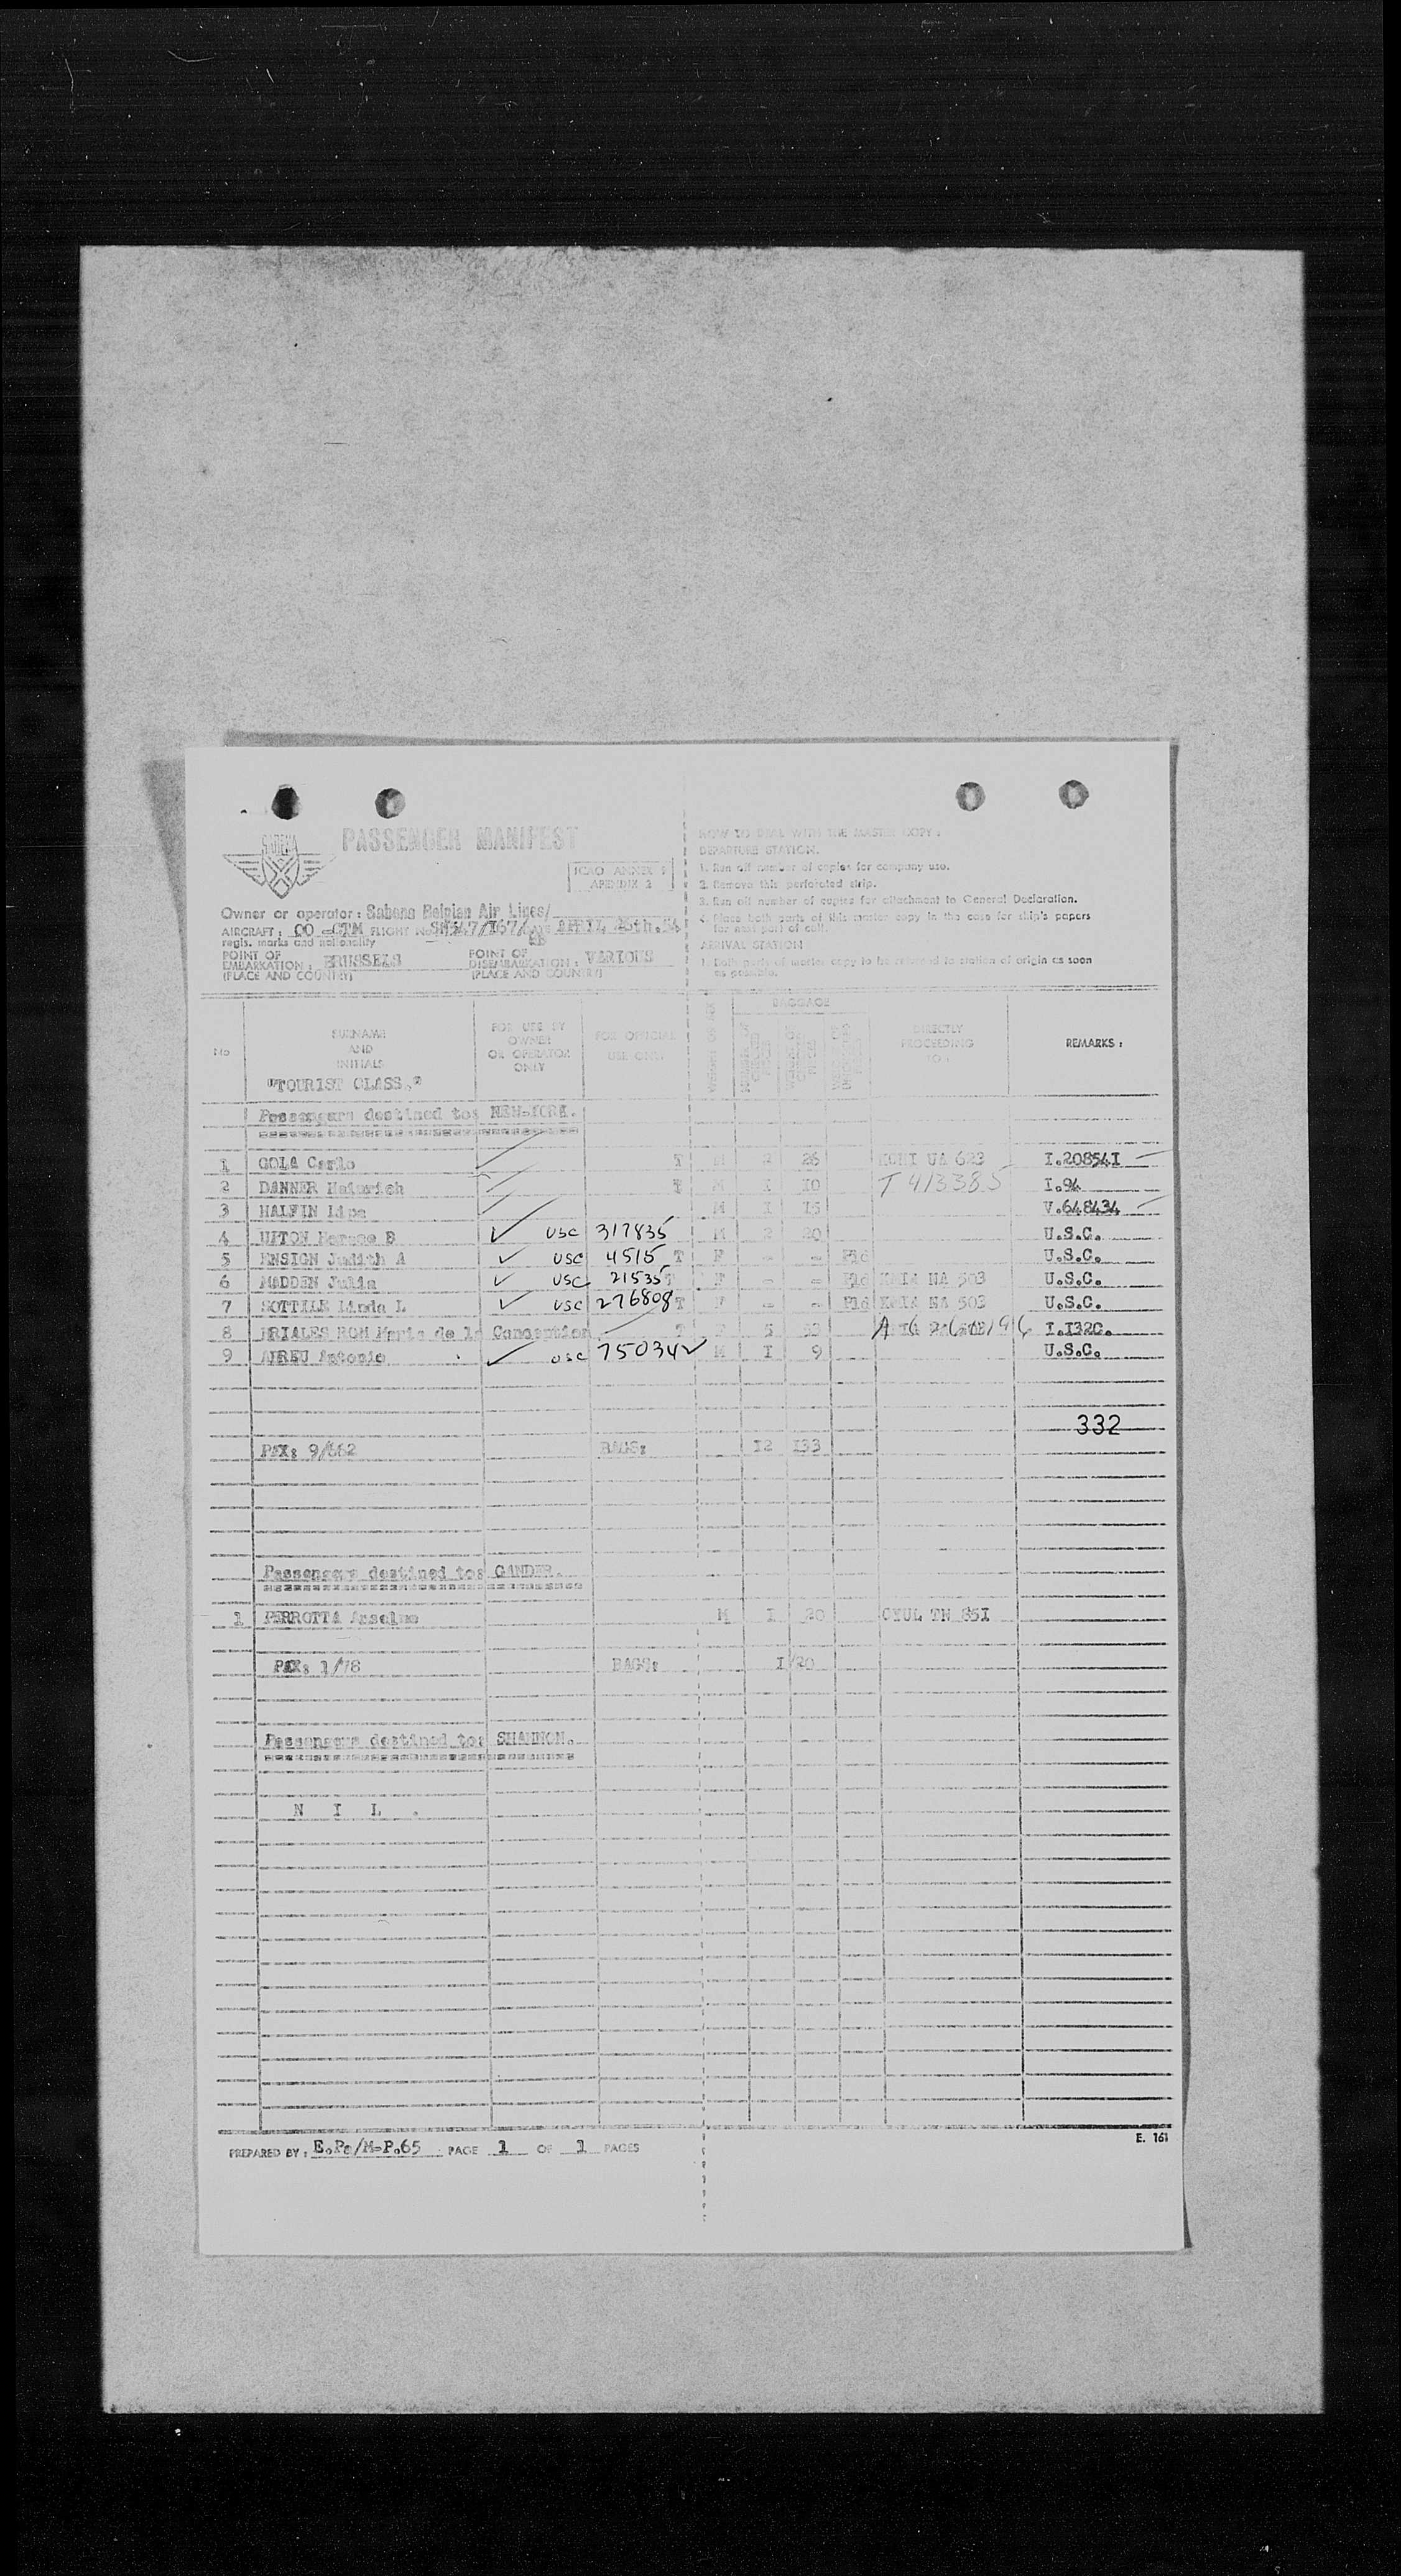 SABENA
PASSENGER MANIFEST
ICAO ANNEX 9
APENDIX 2
Owner or operator : Sabena Belgian Air Lines/
AIRCRAFT : OO -CTM FLIGHT No APRIL
regis. marks and nationality
POINT OF EMBARKATION : BRUSSELS POINT OF DISEMBARKATION : VARIOUS
(PLACE AND COUNTRY) (PLACE AND COUNTRY)
HOW TO DEAL WITH THE MASTER COPY :
DEPARTURE STATION.
1. Run off number of copies for company use.
2. Remove this perforated strip.
3. Run off number of copies for attachment to General Declaration.
4. Place both parts of this master copy in the case for ship's papers
for next port of call.
ARRIVAL STATION
1. Both parts of master copy to be returned to station of origin as soon
as possible.
No SURNAME AND INITIALS FOR USE BY OWNER OR OPERATOR ONLY FOR OFFICIAL USE ONLY BAGGAGE DIRECTLY PROCEEDING TO : REMARKS :
"TOURIST CLASS."
Passengers destined to: NEW-YORK.
1 GOLA Carlo T M 2 26 UA 623 I.208541
2 DANNER Heinrich T M I 10 T 413385 I.94
3 HALFIN Lipa M I 15 V.648434
4 B USC 317835 M 2 20 U.S.C.
5 ENSIGN Judith A USC 4515 T F - - Pld U.S.C.
6 MADDEN Julia USC 21535 T F - - Pld NA 503 U.S.C.
7 SOTTILE Linda L USC 276808 T F - - Pld NA 503 U.S.C.
8 Maria de la Conception T 5 53 I.I320.
9 Antonio USC 75034 M I 9 U.S.C.
332
PAX: 9/662 BAGS: I2 I33
Passengers destined to: GANDER.
1 PERROTTA Anselmo M I 20 CYUL TN 85I
PAX: 1/78 BAGS: I/20
Passengers destined to: SHANNON.
N I L .
PREPARED BY : E.Pe/M-P.65 PAGE 1 OF 1 PAGES
E. 161